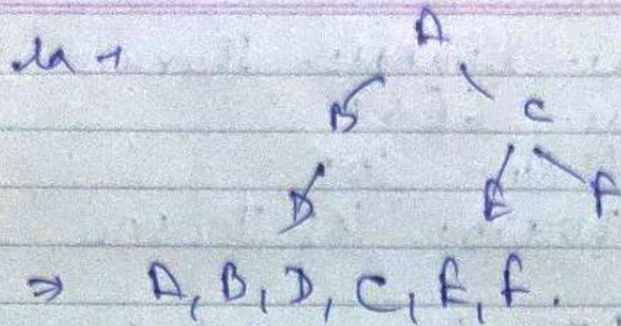 A
B C
D E F
⇒ A, B, D, C, E, F.